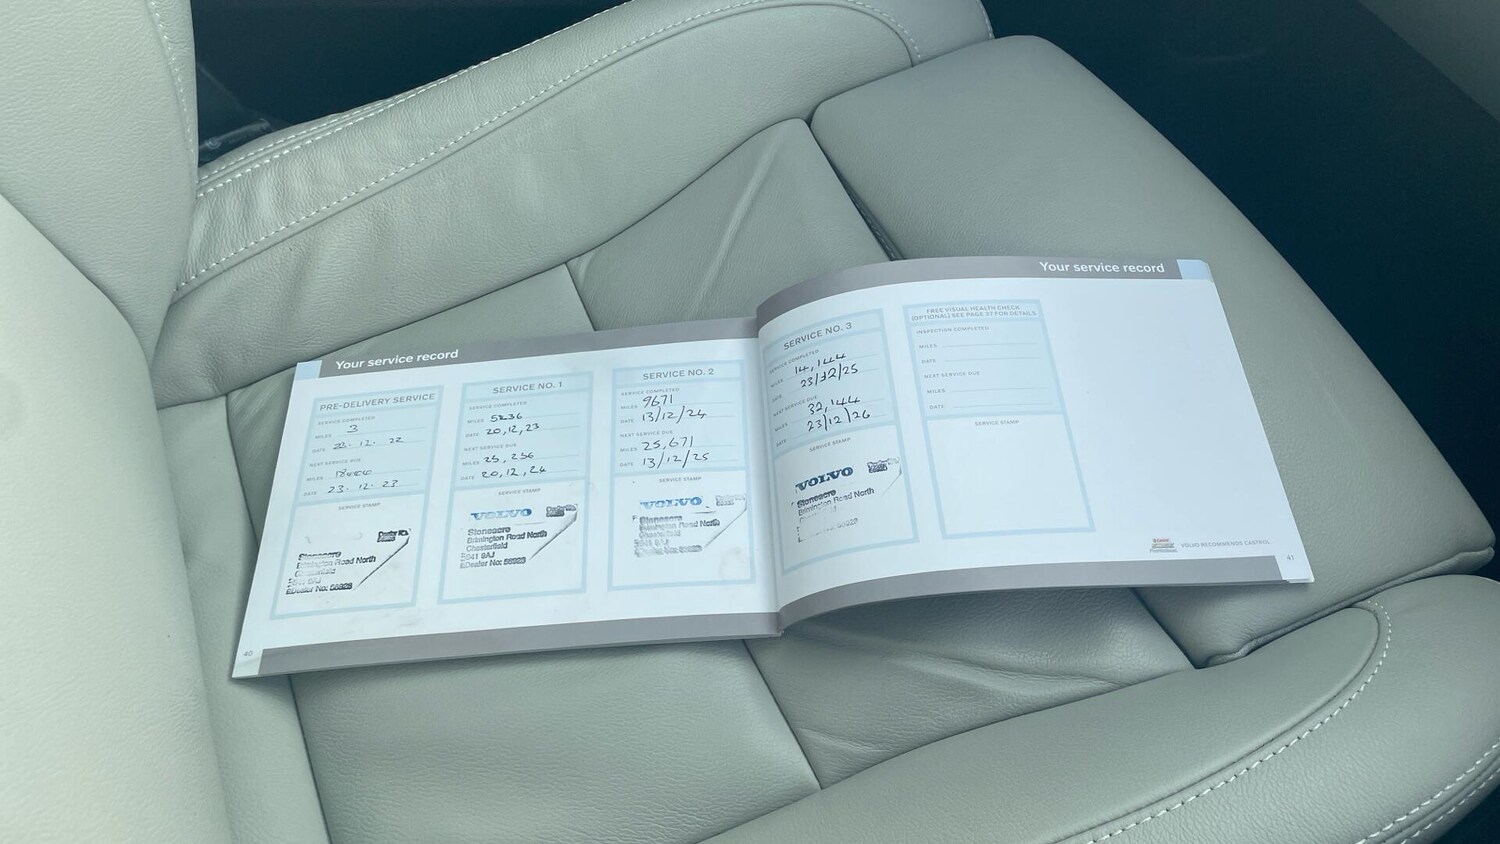 Your service record
PRE-DELIVERY SERVICE
SERVICE COMPLETED
MILES 3
DATE 22.12.22
NEXT SERVICE DUE
MILES
DATE 23.12.23
SERVICE STAMP
Stoneacre
Brimington Road North
Chesterfield
S41 9AJ
Dealer No:
SERVICE NO. 1
SERVICE COMPLETED
MILES 5236
DATE 20,12,23
NEXT SERVICE DUE
MILES 25,236
DATE 20,12,24
SERVICE STAMP
VOLVO
Stoneacre
Brimington Road North
Chesterfield
S41 9AJ
Dealer No:
SERVICE NO. 2
SERVICE COMPLETED
MILES 9671
DATE 13/12/24
NEXT SERVICE DUE
MILES 25,671
DATE 13/12/25
SERVICE STAMP
VOLVO
Stoneacre
Brimington Road North
Chesterfield
40
Your service record
SERVICE NO. 3
SERVICE COMPLETED
MILES 14,144
DATE 23/12/25
NEXT SERVICE DUE
MILES 32,144
DATE 23/12/26
SERVICE STAMP
VOLVO
Stoneacre
Brimington Road North
FREE VISUAL HEALTH CHECK
(OPTIONAL) SEE PAGE 37 FOR DETAILS
INSPECTION COMPLETED
MILES
DATE
NEXT SERVICE DUE
MILES
DATE
SERVICE STAMP
VOLVO RECOMMENDS CASTROL
41